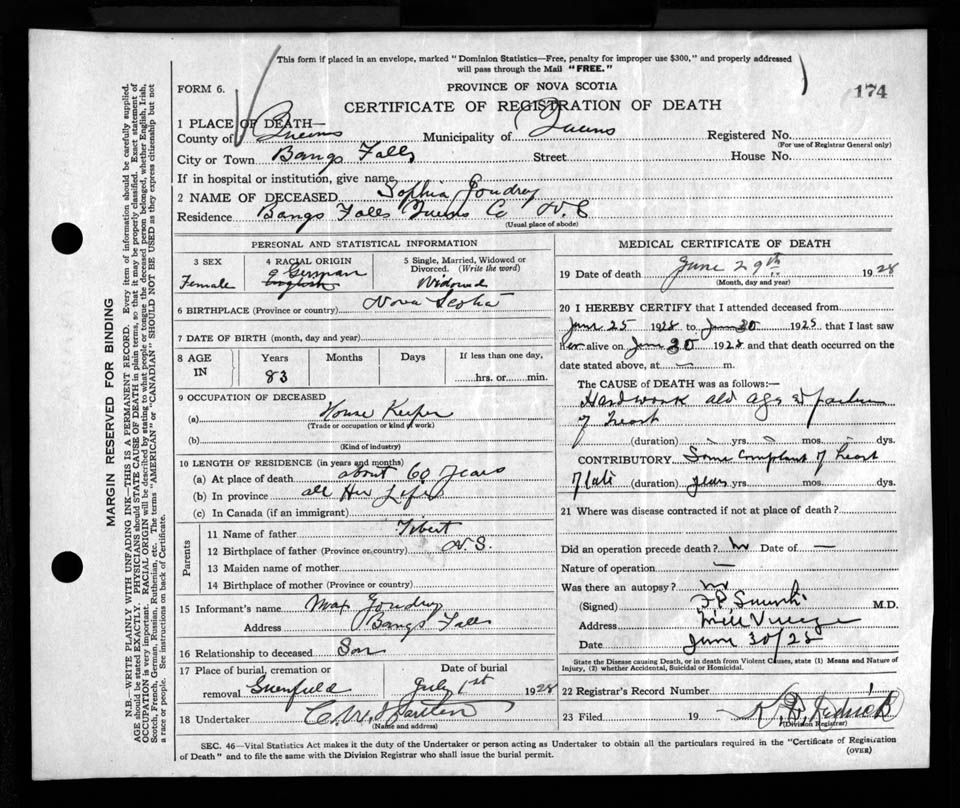 This form if placed in an envelope, marked "Dominion Statistics—Free, penalty for improper use $300," and properly addressed
will pass through the Mail "FREE."
FORM 6.
PROVINCE OF NOVA SCOTIA
174
CERTIFICATE OF REGISTRATION OF DEATH
1 PLACE OF DEATH—
County of Queens Municipality of Queens Registered No.
(For use of Registrar General only)
City or Town Bangs Falls Street House No.
If in hospital or institution, give name
2 NAME OF DECEASED Sophia Joudrey
Residence Bangs Falls Queens Co N.S
(Usual place of abode)
PERSONAL AND STATISTICAL INFORMATION
3 SEX
Female
4 RACIAL ORIGIN
German
English
5 Single, Married, Widowed or Divorced. (Write the word)
Widowed
6 BIRTHPLACE (Province or country) Nova Scotia
7 DATE OF BIRTH (month, day and year)
8 AGE IN
Years Months Days If less than one day,
83
hrs. or min.
9 OCCUPATION OF DECEASED
(a) House Keeper
(Trade or occupation or kind of work)
(b)
(Kind of industry)
10 LENGTH OF RESIDENCE (in years and months)
(a) At place of death about 60 years
(b) In province all Her Life
(c) In Canada (if an immigrant)
Parents
11 Name of father
12 Birthplace of father (Province or country) N.S.
13 Maiden name of mother
14 Birthplace of mother (Province or country)
15 Informant's name Max Joudrey
Address Bangs Falls
16 Relationship to deceased Son
17 Place of burial, cremation or Date of burial
removal Greenfield July 1st 1928
18 Undertaker
(Name and address)
MEDICAL CERTIFICATE OF DEATH
19 Date of death June 29th 1928
(Month, day and year)
20 I HEREBY CERTIFY that I attended deceased from
June 25 1928 to June 30 1928 that I last saw
Her alive on June 30 1928 and that death occurred on the
date stated above, at — m.
The CAUSE OF DEATH was as follows:—
Hard work old age & failure
of heart
(duration) yrs. mos. dys.
CONTRIBUTORY Some complaint of heart
of late (duration) years yrs. mos. dys.
21 Where was disease contracted if not at place of death?
Did an operation precede death? no Date of —
Nature of operation —
Was there an autopsy? no
(Signed) M.D.
Address Mill Village
Date June 30/28
State the Disease causing Death, or in death from Violent Causes, state (1) Means and Nature of
Injury, (2) whether Accidental, Suicidal or Homicidal.
22 Registrar's Record Number
23 Filed 19
(Division Registrar)
SEC. 46—Vital Statistics Act makes it the duty of the Undertaker or person acting as Undertaker to obtain all the particulars required in the "Certificate of Registration
of Death" and to file the same with the Division Registrar who shall issue the burial permit.
(OVER)
MARGIN RESERVED FOR BINDING
N.B.—WRITE PLAINLY WITH UNFADING INK—THIS IS A PERMANENT RECORD. Every item of information should be carefully supplied.
AGE should be stated EXACTLY. PHYSICIANS should STATE CAUSE OF DEATH in plain terms, so that it may be properly classified. Exact statement of
OCCUPATION is very important. RACIAL ORIGIN will be described by stating to what people or tongue the deceased person belonged, whether English, Irish,
Scotch, French, German, Russian, Ruthenian, etc. The terms "AMERICAN" or "CANADIAN" SHOULD NOT BE USED as they express citizenship but not
a race or people. See instructions on back of Certificate.